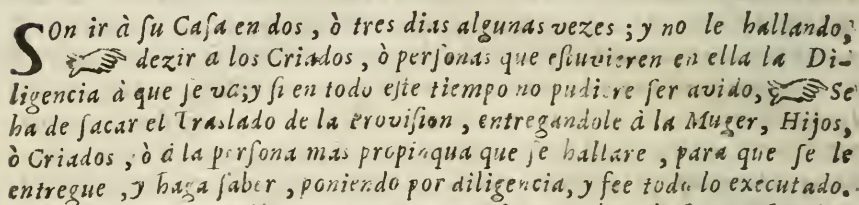 SOn ir à ſu Caſa en dos, ò tres dias algunas vezes; y no le hallando,
☞ dezir a los Criados, ò perſonas que eſtuvieren en ella la Di-
ligencia à que ſe va; y ſi en todo eſte tiempo no pudiere ſer avido, ☞ Se
ha de ſacar el Traslado de la Proviſion, entregandole à la Muger, Hijos,
ò Criados, ò á la perſona mas propinqua que ſe hallare, para que ſe le
entregue, y haga ſaber, poniendo por diligencia, y fee todo lo executado.